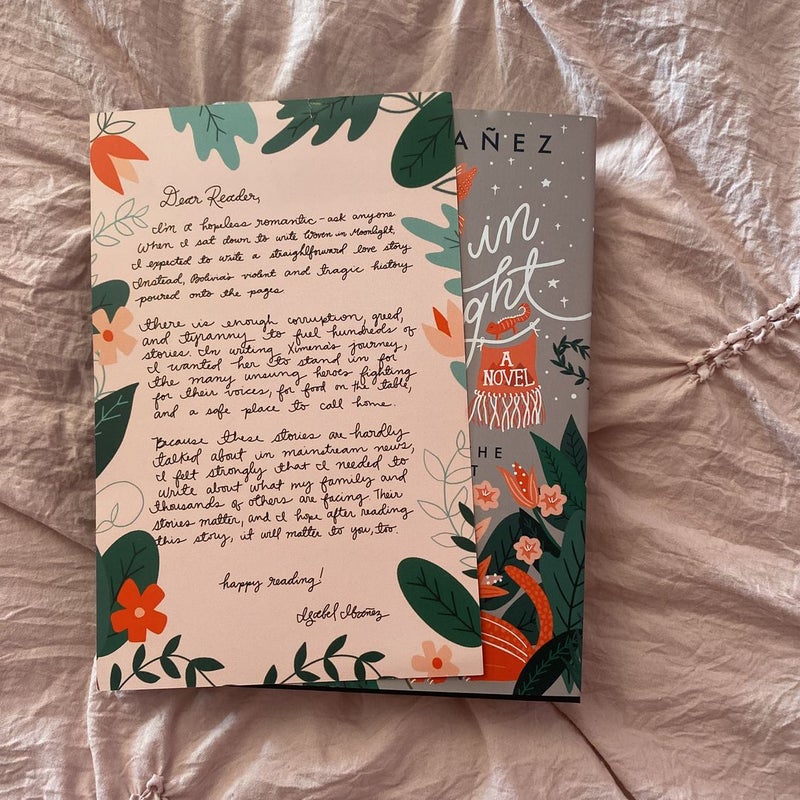 Dear Reader,
I'm a hopeless romantic - ask anyone
When I sat down to write Woven in Moonlight,
I expected to write a straightforward love story
Instead, Bolivia's violent and tragic history
poured onto the pages
There is enough corruption, greed,
and tyranny to fuel hundreds of
stories. In writing Ximena's journey,
I wanted her to stand in for
the many unsung heroes fighting
for their voices, for food on the table,
and a safe place to call home.
Because these stories are hardly
talked about in mainstream news,
I felt strongly that I needed to
write about what my family and
thousands of others are facing Their
stories matter, and I hope after reading
this story, it will matter to you, too.
happy reading!
Isabel Ibañez
AÑEZ
in
ght
A
NOVEL
HE
T